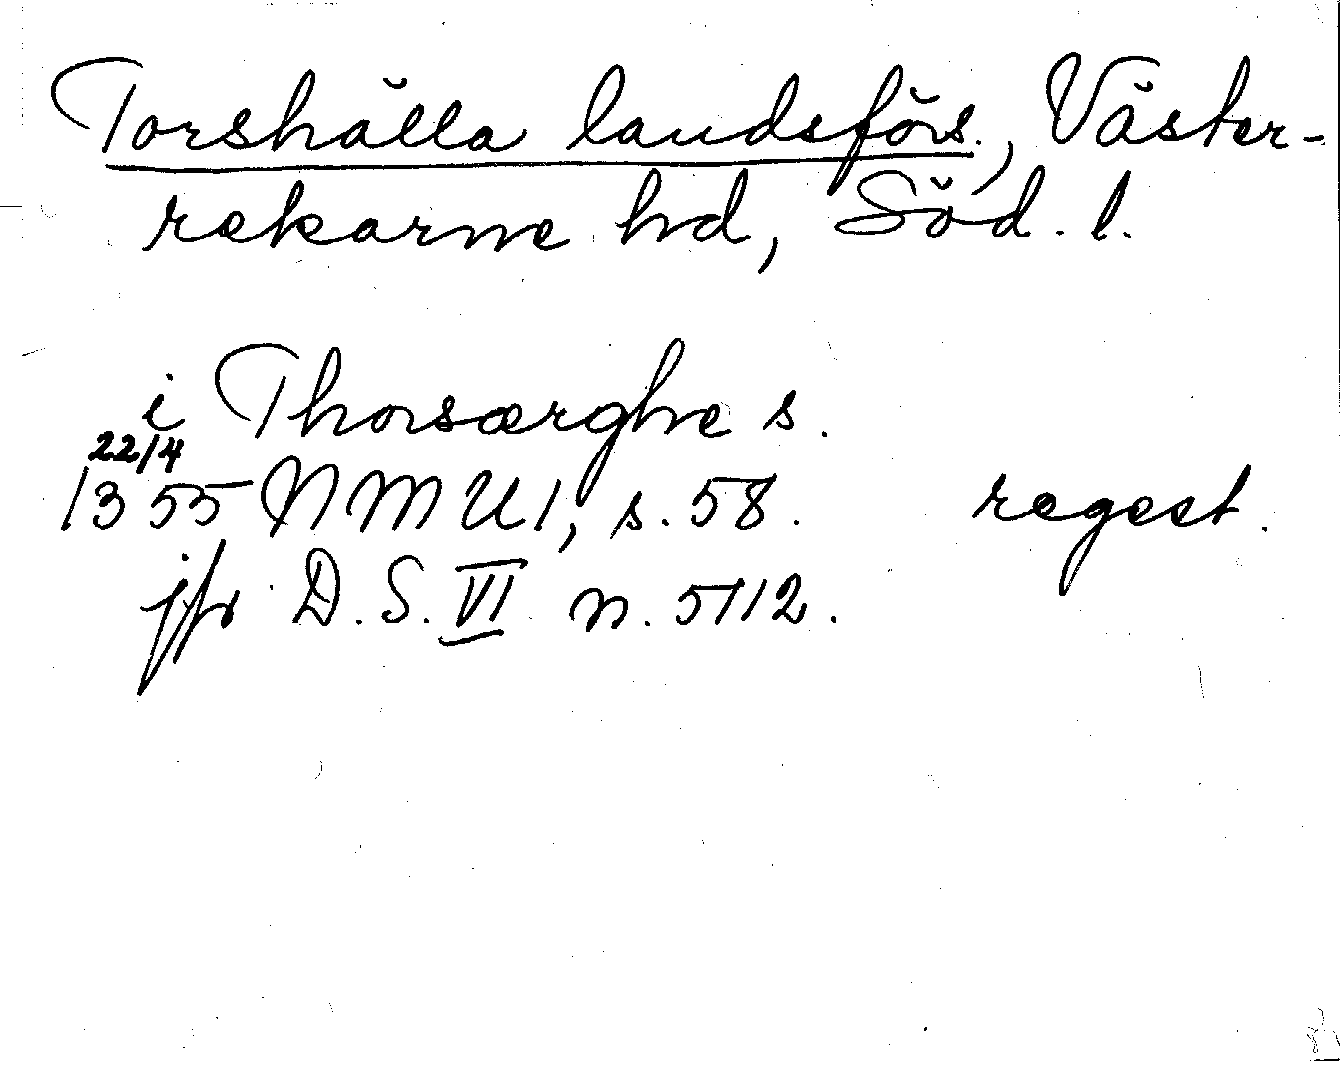 Torshälla landsförs., Väster-
rekarne hd, Söd. l.
i Thorsærghe s.
22/4
1355 NMU1, s. 58. regest.
jfr D. S. VI n. 5112.